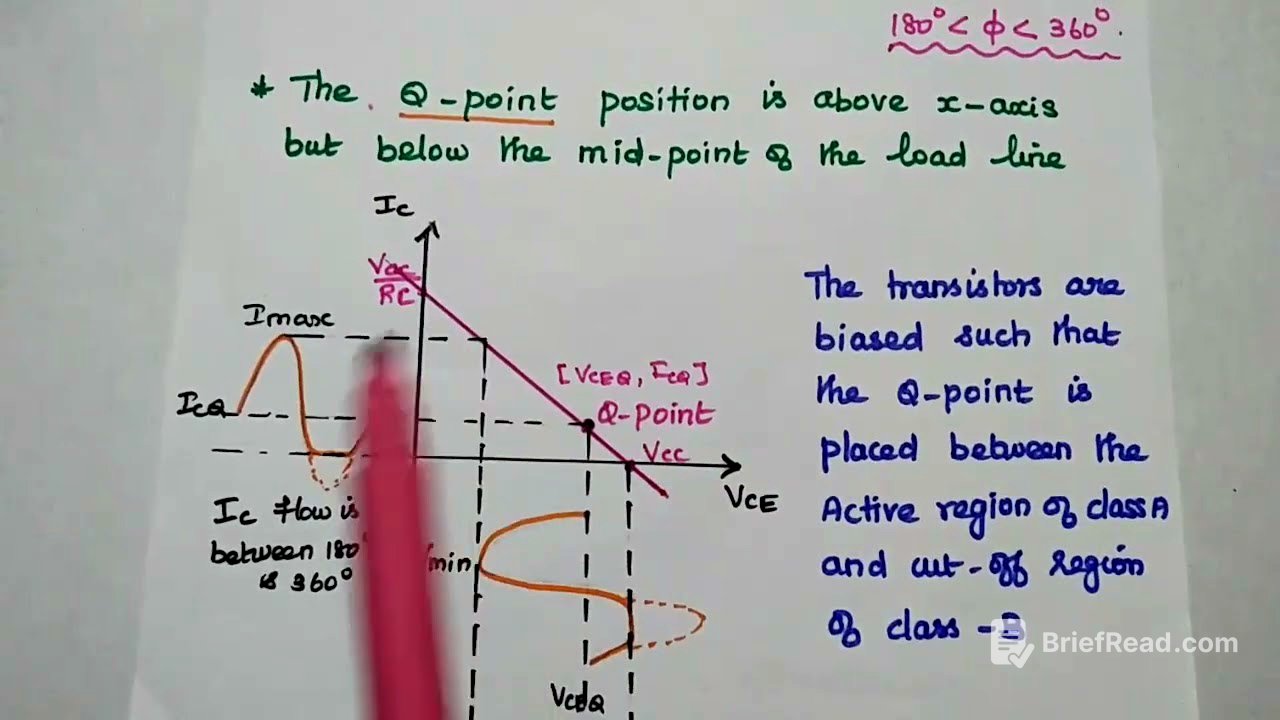 180° < ϕ < 360°.
* The Q-point position is above x-axis
but below the mid-point of the load line
Ic
Vcc
RC
Imax
[VCEQ, ICQ]
ICQ
Q-point
Vcc
VCE
Ic flow is
between 180°
is 360°
min
VCEQ
The transistors are
biased such that
the Q-point is
placed between the
Active region of class A
and cut-off region
of class -B
BriefRead.com